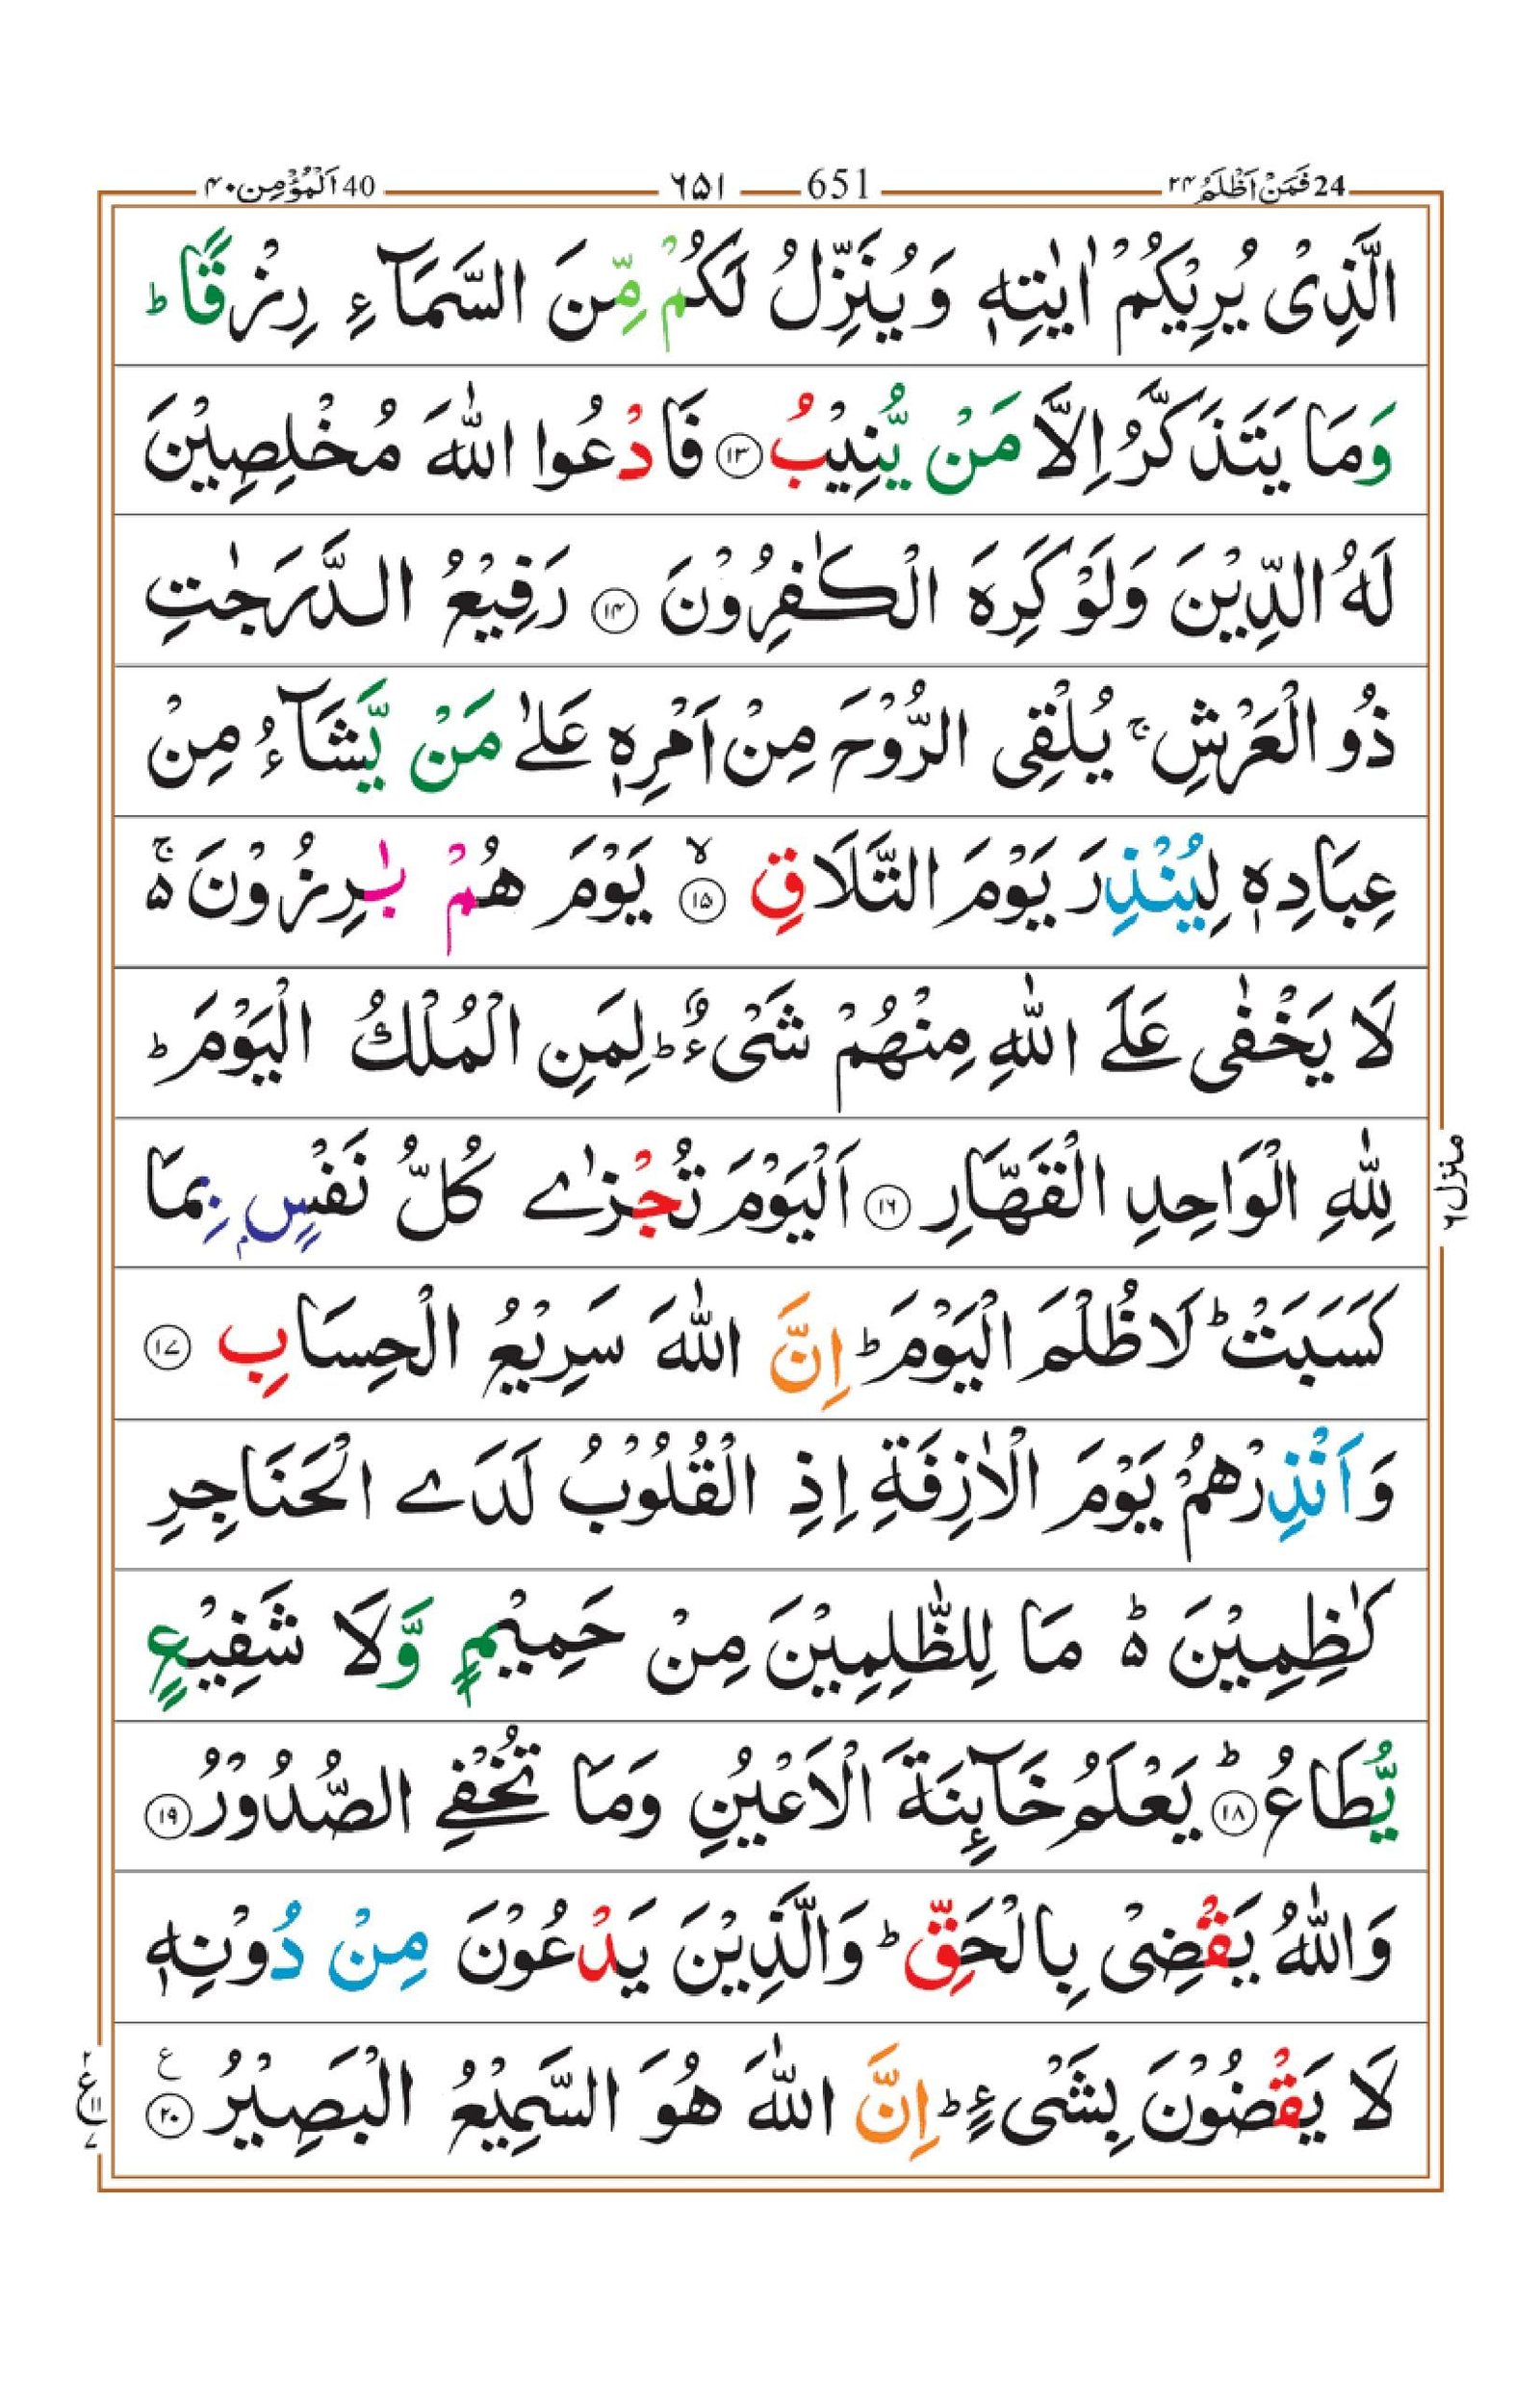 24 فَمَنْ اَظْلَمُ ۲۴ 651 ۶۵۱ 40 اَلْمُؤْمِن ۴۰
الَّذِىْ يُرِيْكُمْ اٰيٰتِهٖ وَيُنَزِّلُ لَكُمْ مِّنَ السَّمَآءِ رِزْقًا ؕ
وَمَا يَتَذَكَّرُ اِلَّا مَنْ يُّنِيْبُ ۝۱۳ فَادْعُوا اللّٰهَ مُخْلِصِيْنَ
لَهُ الدِّيْنَ وَلَوْ كَرِهَ الْكٰفِرُوْنَ ۝۱۴ رَفِيْعُ الدَّرَجٰتِ
ذُو الْعَرْشِ ۚ يُلْقِى الرُّوْحَ مِنْ اَمْرِهٖ عَلٰى مَنْ يَّشَآءُ مِنْ
عِبَادِهٖ لِيُنْذِرَ يَوْمَ التَّلَاقِ ۙ۝۱۵ يَوْمَ هُمْ بٰرِزُوْنَ ۵ۚ
لَا يَخْفٰى عَلَى اللّٰهِ مِنْهُمْ شَىْءٌ ؕ لِمَنِ الْمُلْكُ الْيَوْمَ ؕ
لِلّٰهِ الْوَاحِدِ الْقَهَّارِ ۝۱۶ اَلْيَوْمَ تُجْزٰى كُلُّ نَفْسٍۢ بِمَا
كَسَبَتْ ؕ لَا ظُلْمَ الْيَوْمَ ؕ اِنَّ اللّٰهَ سَرِيْعُ الْحِسَابِ ۝۱۷
وَاَنْذِرْهُمْ يَوْمَ الْاٰزِفَةِ اِذِ الْقُلُوْبُ لَدَى الْحَنَاجِرِ
كٰظِمِيْنَ ۵ؕ مَا لِلظّٰلِمِيْنَ مِنْ حَمِيْمٍ وَّلَا شَفِيْعٍ
يُّطَاعُ ؕ۝۱۸ يَعْلَمُ خَآئِنَةَ الْاَعْيُنِ وَمَا تُخْفِى الصُّدُوْرُ ۝۱۹
وَاللّٰهُ يَقْضِىْ بِالْحَقِّ ؕ وَالَّذِيْنَ يَدْعُوْنَ مِنْ دُوْنِهٖ
لَا يَقْضُوْنَ بِشَىْءٍ ؕ اِنَّ اللّٰهَ هُوَ السَّمِيْعُ الْبَصِيْرُ ۝۲۰ ع
منزل ۶
۲ ع ۱۱ ۷